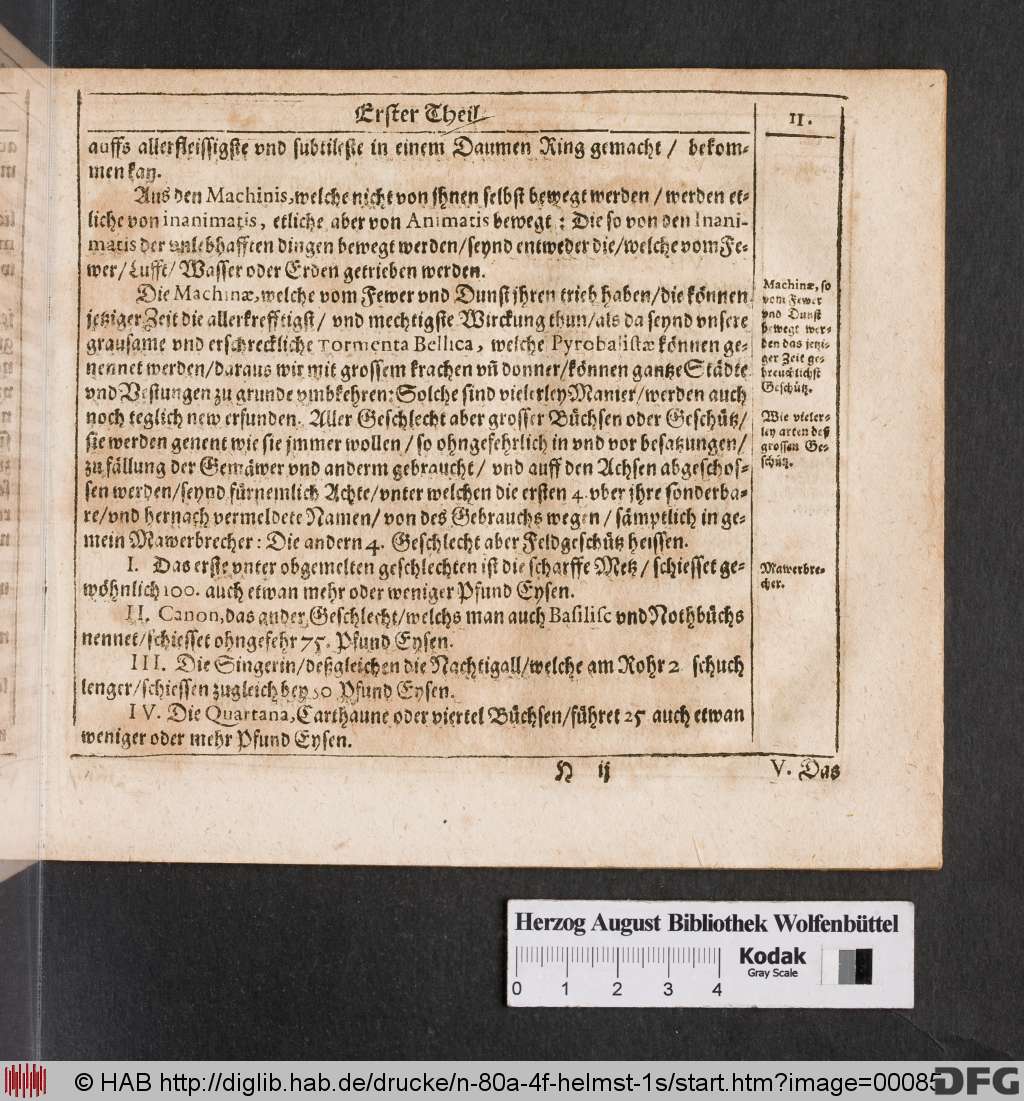 Erster Theil
11.
auffs allerfleissigste vnd subtileste in einem Daumen Ring gemacht / bekom-
men kan.
Aus den Machinis, welche nicht von jhnen selbst bewegt werden / werden et-
liche von inanimatis, etliche aber von Animatis bewegt: Die so von den Inani-
matis der unlebhafften dingen bewegt werden / seynd entweder die / welche vom Fe-
wer / Lufft / Wasser oder Erden getrieben werden.
Die Machinæ, welche vom Fewer vnd Dunst jhren trieb haben / die können
jetziger Zeit die allerkrefftigst / vnd mechtigste Wirckung thun / als da seynd vnsere
grausame vnd erschreckliche Tormenta Bellica, welche Pyrobalistæ können ge-
nennet werden / daraus wir mit grossem krachen vñ donner / können gantze Städte
vnd Vestungen zu grunde vmbkehren: Solche sind vielerley Manier / werden auch
noch teglich new erfunden. Aller Geschlecht aber grosser Büchsen oder Geschütz /
sie werden genent wie sie jmmer wollen / so ohngefehrlich in vnd vor besatzungen /
zu fällung der Gemäwer vnd anderm gebraucht / vnd auff den Achsen abgeschos-
sen werden / seynd fürnemlich Achte / vnter welchen die ersten 4. vber jhre sonderba-
re / vnd hernach vermeldete Namen / von des Gebrauchs wegen / sämptlich in ge-
mein Mawerbrecher: Die andern 4. Geschlecht aber Feldgeschütz heissen.
I. Das erste vnter obgemelten geschlechten ist die scharffe Metz / schiesset ge-
wöhnlich 100. auch etwan mehr oder weniger Pfund Eysen.
II. Canon, das ander Geschlecht / welchs man auch Basilisc vnd Nothbüchs
nennet / schiesset ohngefehr 75. Pfund Eysen.
III. Die Singerin / deßgleichen die Nachtigall / welche am Rohr 2 schuch
lenger / schiessen zugleich bey 50 Pfund Eysen.
IV. Die Quartana, Carthaune oder viertel Büchsen / führet 25 auch etwan
weniger oder mehr Pfund Eysen.
Machinæ, so
vom Fewer
vnd Dunst
bewegt wer-
den das jetzi-
ger Zeit ge-
breuchlichst
Geschütz.
Wie vieler-
ley arten deß
grossen Ge-
schütz.
Mawerbre-
cher.
N ij
V. Das
Herzog August Bibliothek Wolfenbüttel
Kodak
Gray Scale
0 1 2 3 4
© HAB http://diglib.hab.de/drucke/n-80a-4f-helmst-1s/start.htm?image=00085
DFG